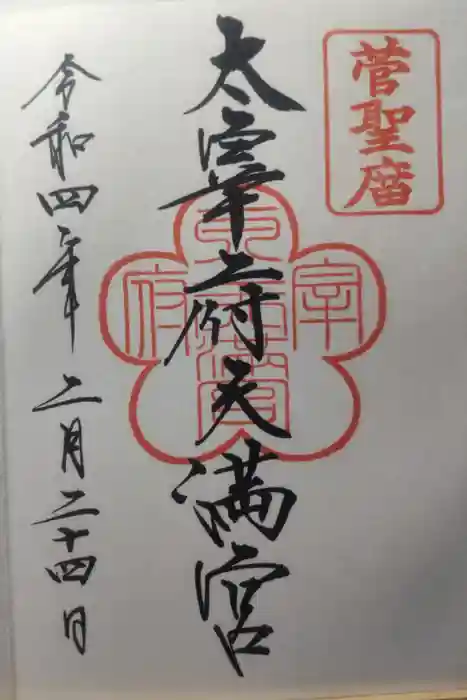 菅聖庿
太宰府天満宮
宰
府
令和四年 二月二十四日